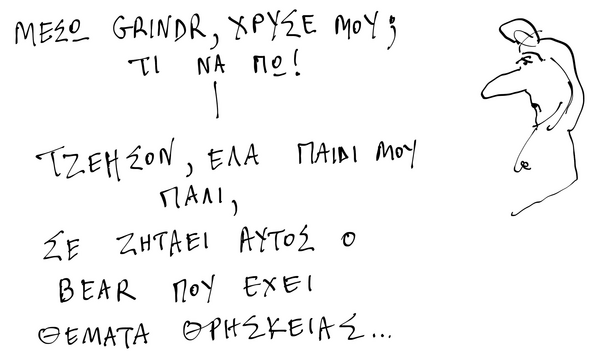 ΜΕΣΩ GRINDR, ΧΡΥΣΕ ΜΟΥ;
ΤΙ ΝΑ ΠΩ!
ΤΖΕΗΣΟΝ, ΕΛΑ ΠΑΙΔΙ ΜΟΥ
ΠΑΛΙ,
ΣΕ ΖΗΤΑΕΙ ΑΥΤΟΣ Ο
BEAR ΠΟΥ ΕΧΕΙ
ΘΕΜΑΤΑ ΘΡΗΣΚΕΙΑΣ...